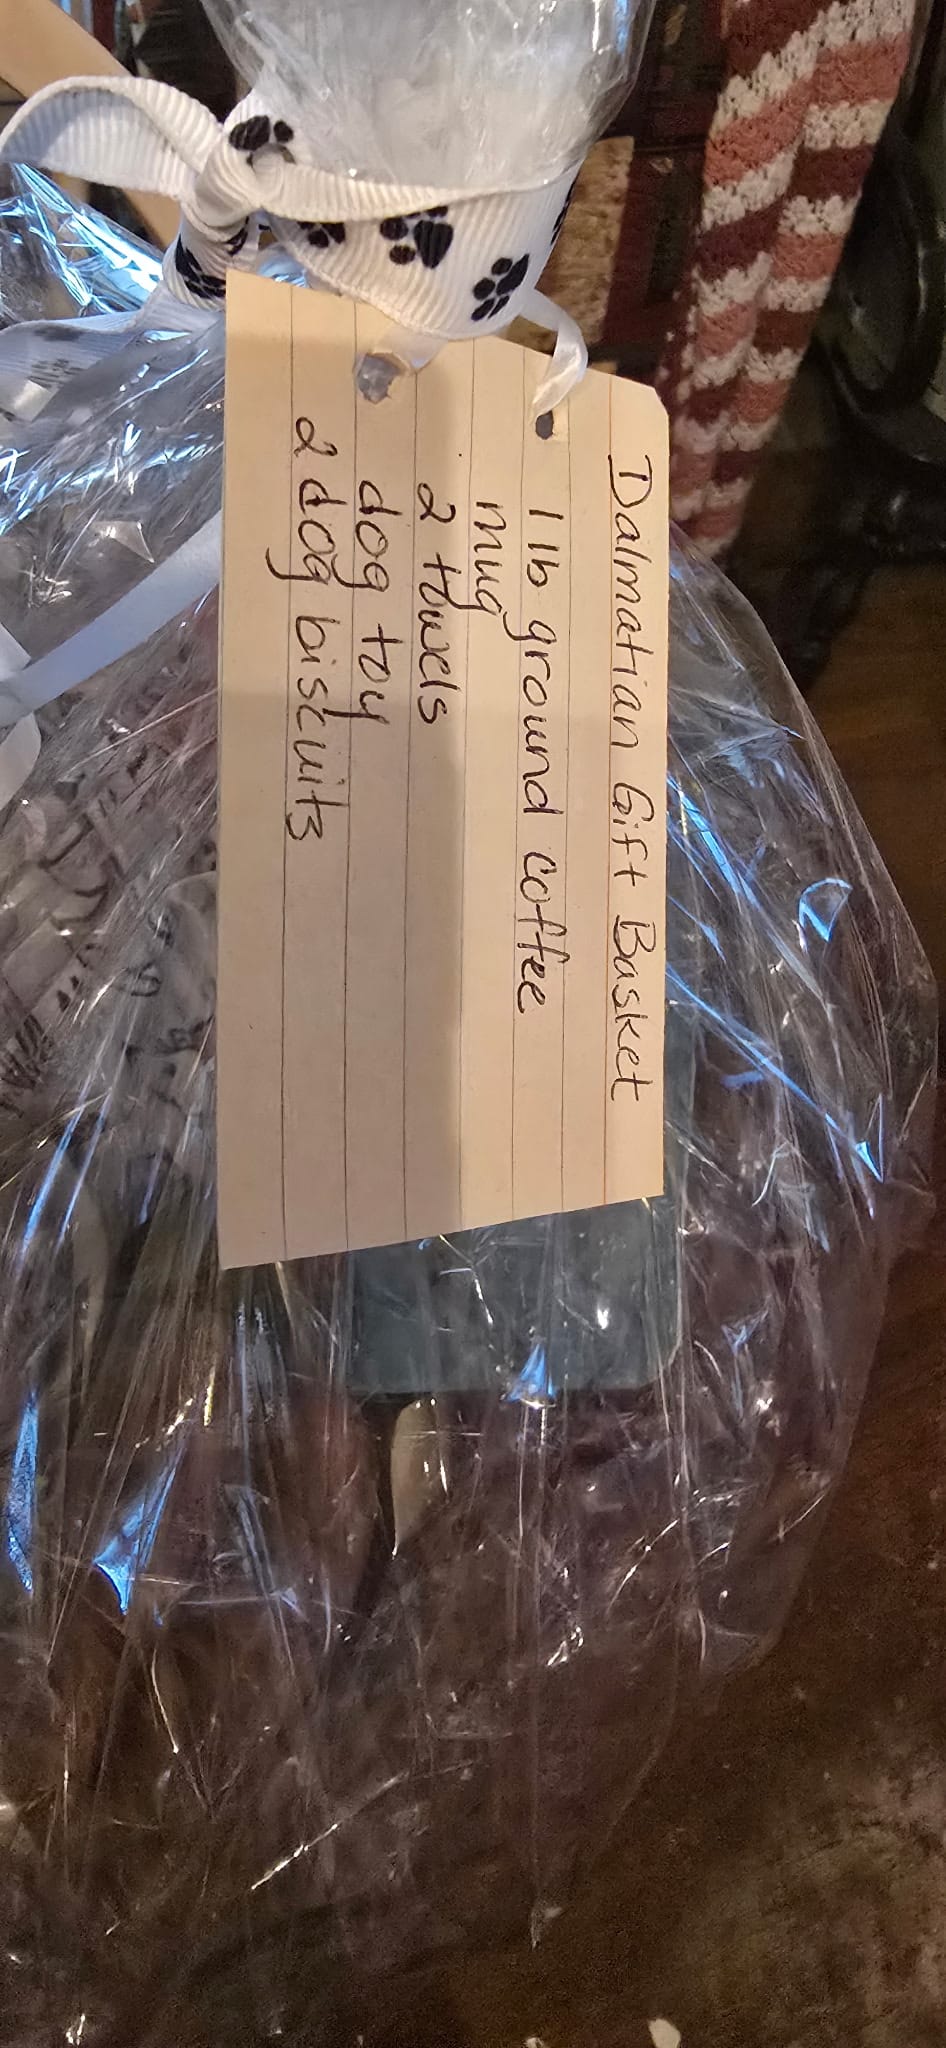 Dalmatian Gift Basket
1 lb ground coffee
mug
2 towels
dog toy
2 dog biscuits